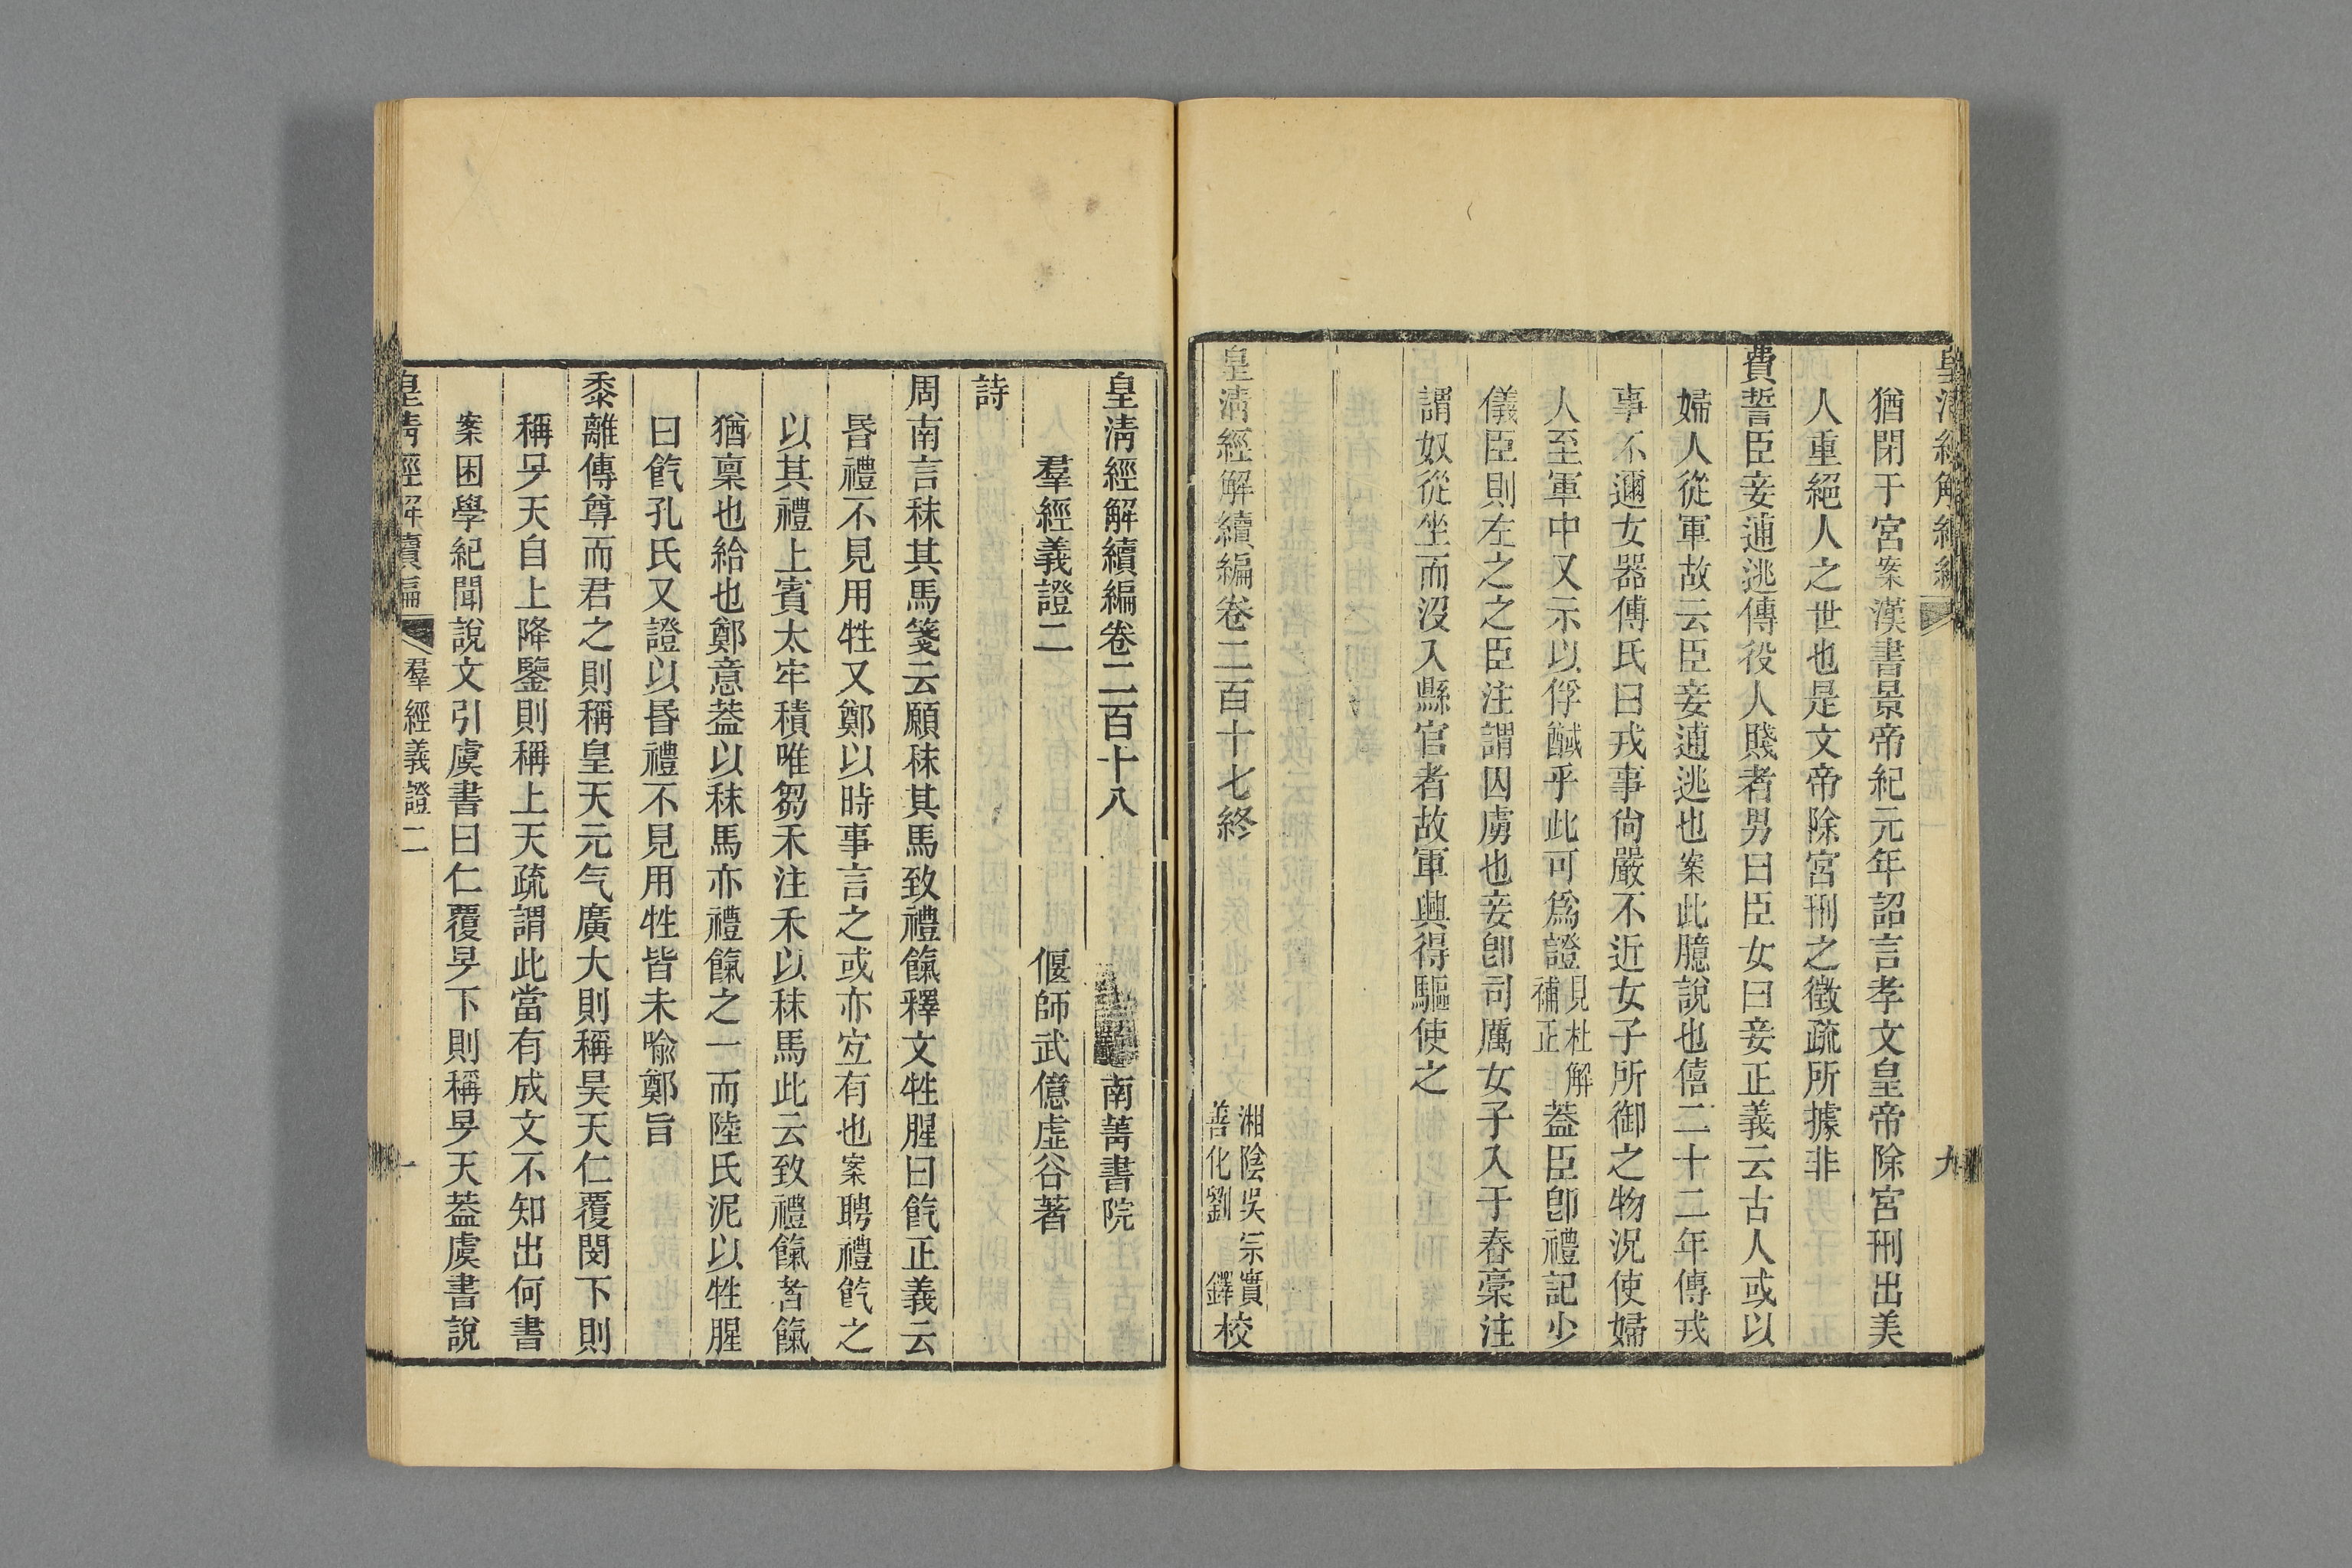 皇清經解續編
九
猶閉于宮案漢書景帝紀元年詔言孝文皇帝除宮刑出美
人重絕人之世也是文帝除宮刑之徵疏所據非
費誓臣妾逋逃傳役人賤者男曰臣女曰妾正義云古人或以
婦人從軍故云臣妾逋逃也案此臆說也僖二十二年傳戎
事不邇女器傅氏曰戎事尙嚴不近女子所御之物況使婦
人至軍中又示以俘馘乎此可爲證見杜解補正蓋臣卽禮記少
儀臣則左之之臣注謂囚虜也妾卽司厲女子入于舂稾注
謂奴從坐而沒入縣官者故軍興得驅使之
皇清經解續編卷二百十七終
湘陰吳宗實
善化劉鐸校
皇清經解續編卷二百十八
南菁書院
羣經義證二
偃師武億虛谷著
詩
周南言秣其馬箋云願秣其馬致禮餼釋文牲腥曰餼正義云
昏禮不見用牲又鄭以時事言之或亦宐有也案聘禮餼之
以其禮上賓太牢積唯芻禾注禾以秣馬此云致禮餼者餼
猶稟也給也鄭意蓋以秣馬亦禮餼之一而陸氏泥以牲腥
曰餼孔氏又證以昏禮不見用牲皆未喻鄭旨
黍離傳尊而君之則稱皇天元气廣大則稱昊天仁覆閔下則
稱旻天自上降鑒則稱上天疏謂此當有成文不知出何書
案困學紀聞說文引虞書曰仁覆旻下則稱旻天蓋虞書說
皇清經解續編
羣經義證二
一